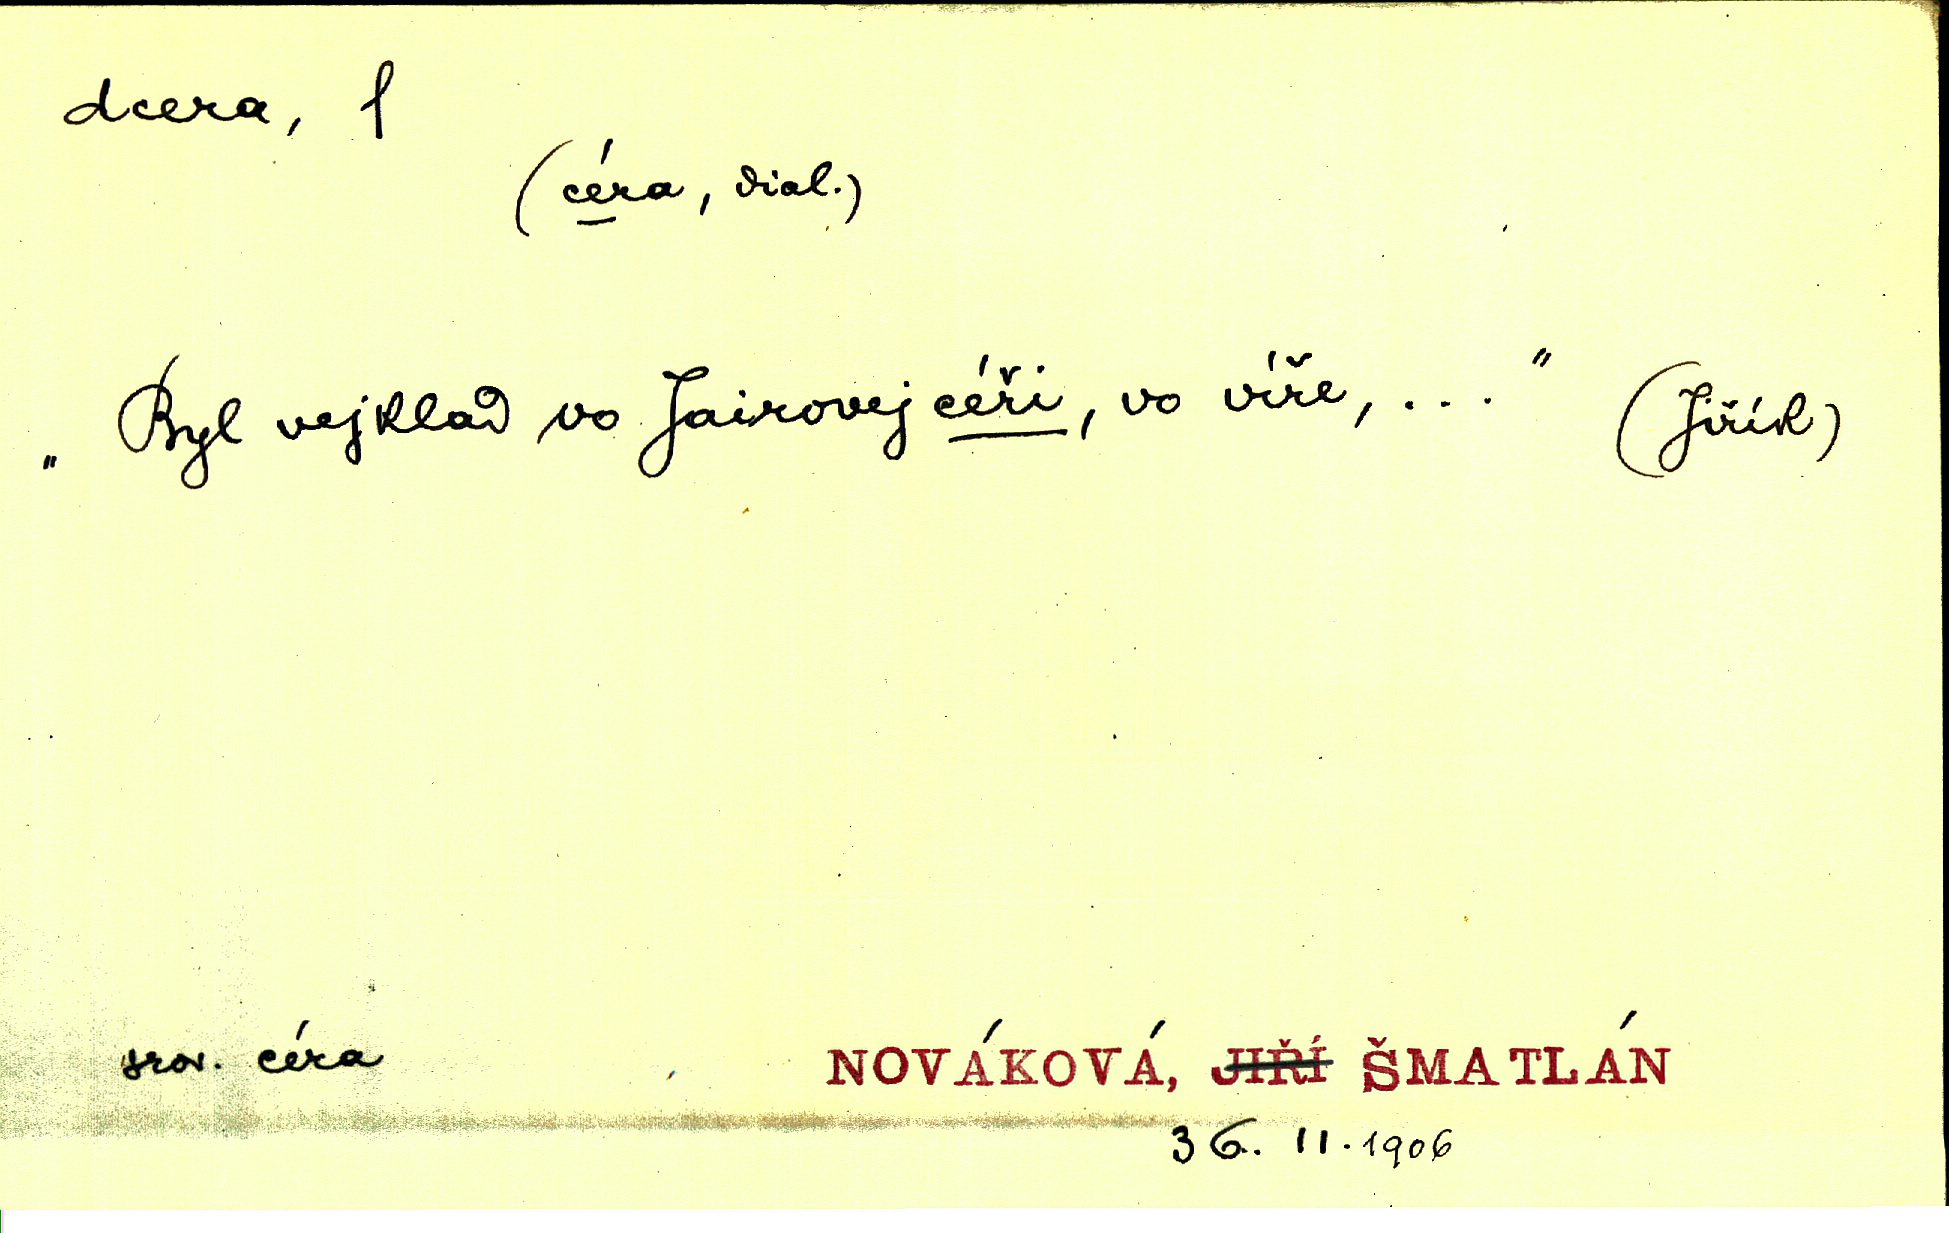 dcera, f
(céra, dial.)
„Byl vejklad vo Jairovej céři, vo víře, ...“ (Jiřík)
srov. céra
NOVÁKOVÁ, JIŘÍ ŠMATLÁN
36. II. 1906